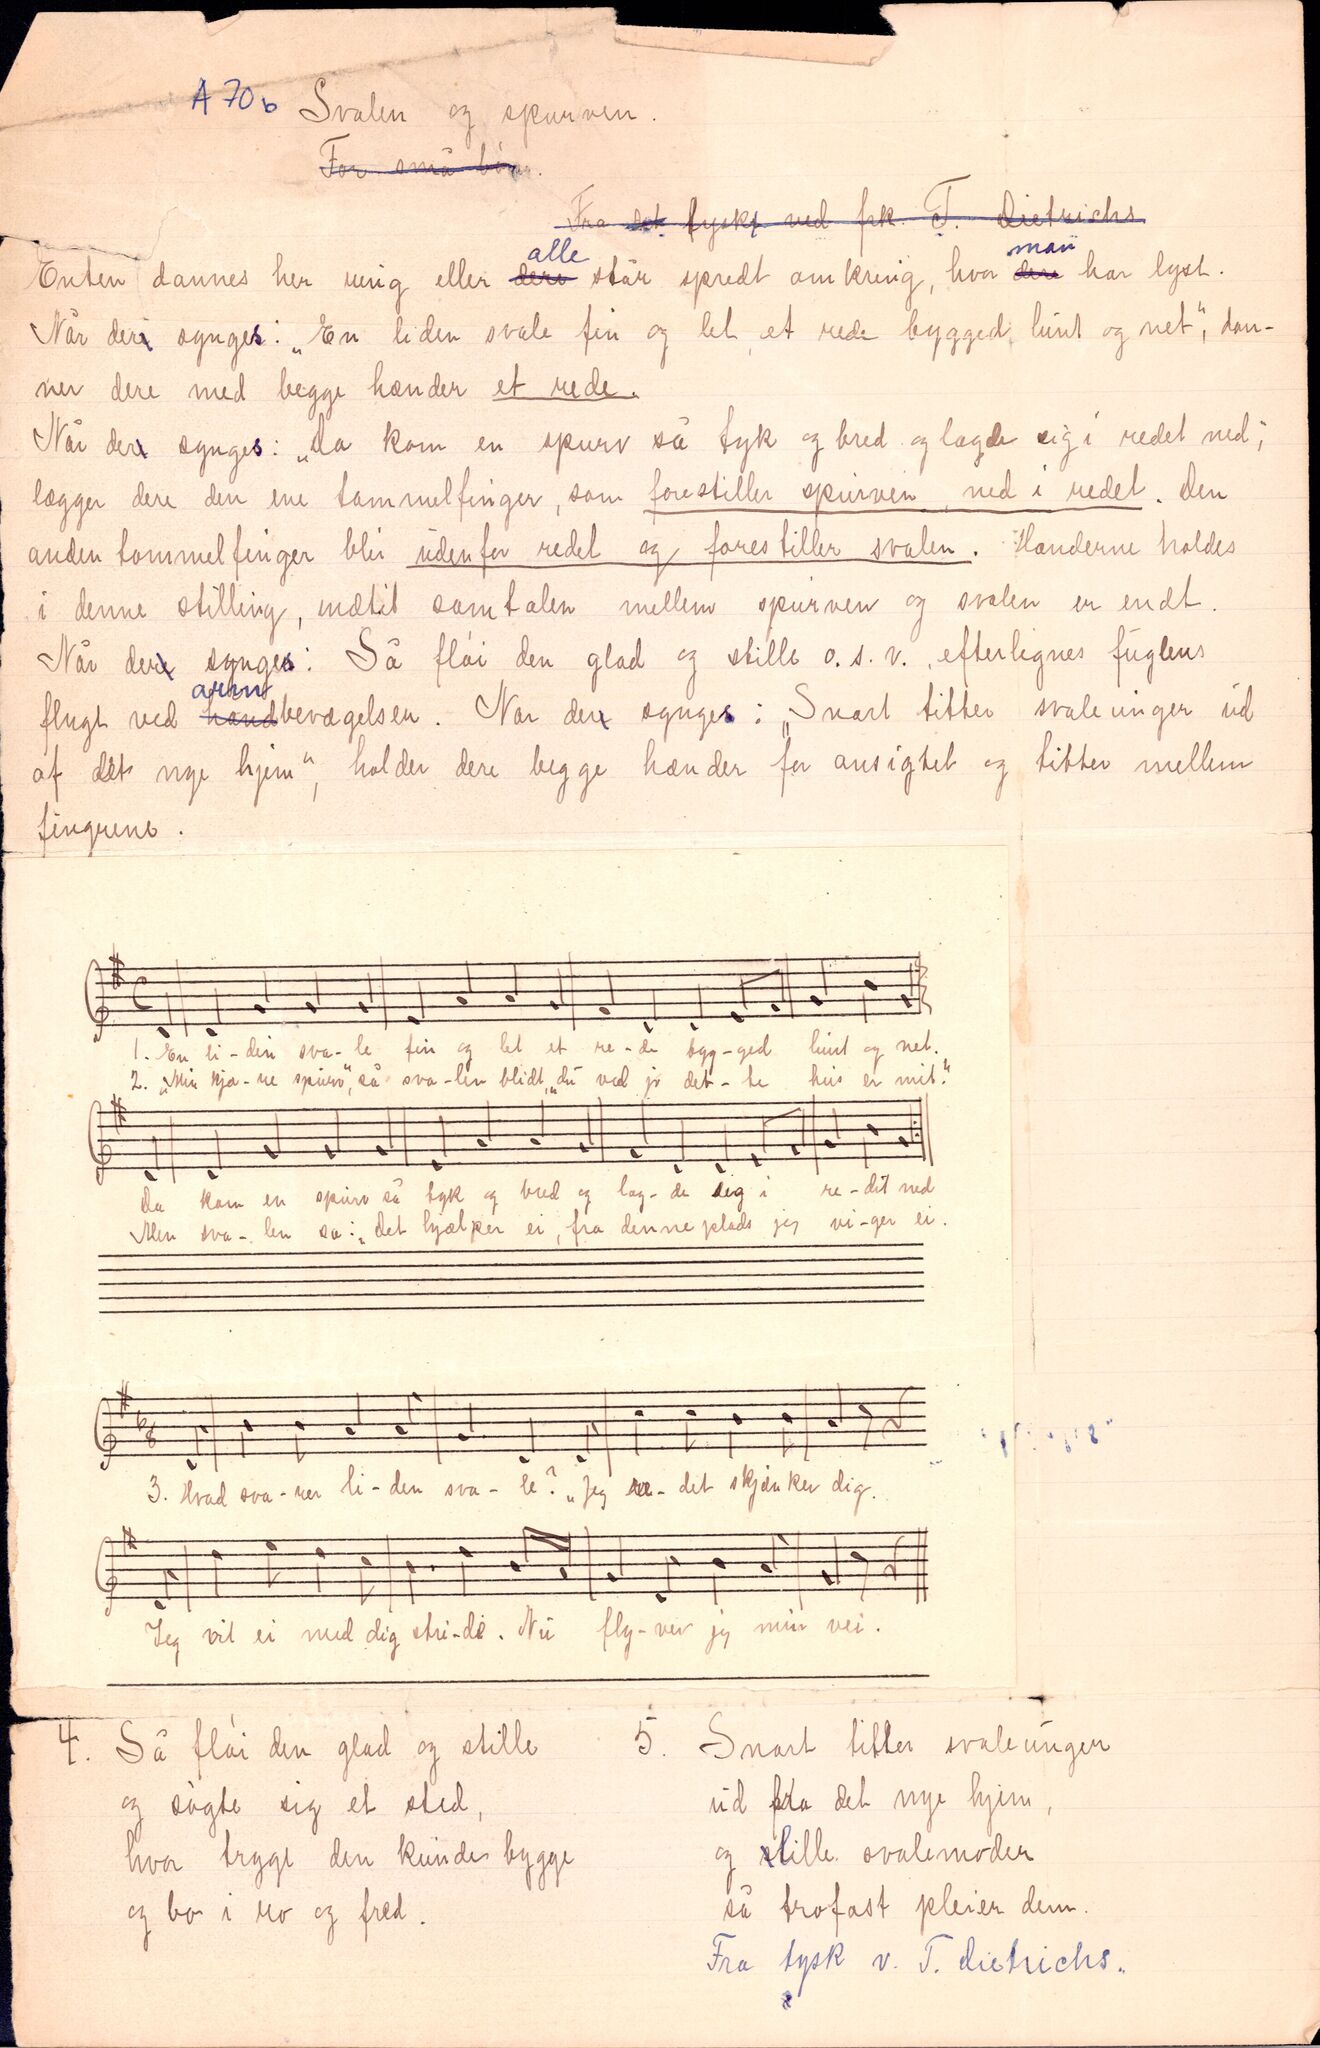 A 70b Svalen og spurven.
For små børn.
Fra det tyske ved frk. T. Dietrichs
alle man
Enten dannes her ring eller dere står spredt omkring, hvor dere har lyst.
Når der synges: „En liden svale fin og let, et rede bygged lunt og net“, dan-
ner dere med begge hænder et rede.
Når der synges: „Da kom en spurv så tyk og bred og lagde sig i redet ned;
lægger dere den ene tommelfinger, som forestiller spurven, ned i redet. Den
anden tommelfinger blir udenfor redet og forestiller svalen. Hænderne holdes
i denne stilling, indtil samtalen mellem spurven og svalen er endt.
Når der synges: Så fløi den glad og stille o.s.v., efterlignes fuglens
arm
flugt ved håndbevægelser. Når der synges: „Snart titter svaleunger ud
af det nye hjem“, holder dere begge hænder for ansigtet og titter mellem
fingrene.
1. En li-den sva-le fin og let et re-de byg-ged lunt og net.
2. „Min kjæ-re spurv“, sa sva-len blidt, „du ved jo det-te hus er mit.“
Da kom en spurv så tyk og bred og lag-de sig i re-det ned
Men sva-len sa: „det hjælper ei, fra denne plads jeg vi-ger ei.
3. Hvad sva-rer li-den sva-le? „Jeg re-det skjænker dig.
Jeg vil ei med dig stri-de. Nu fly-ver jeg min vei.
4. Så fløi den glad og stille
og søgte sig et sted,
hvor trygt den kunde bygge
og bo i ro og fred.
5. Snart titter svaleunger
ud fra det nye hjem,
og lille svalemoder
så trofast pleier dem.
Fra tysk v. T. Dietrichs.